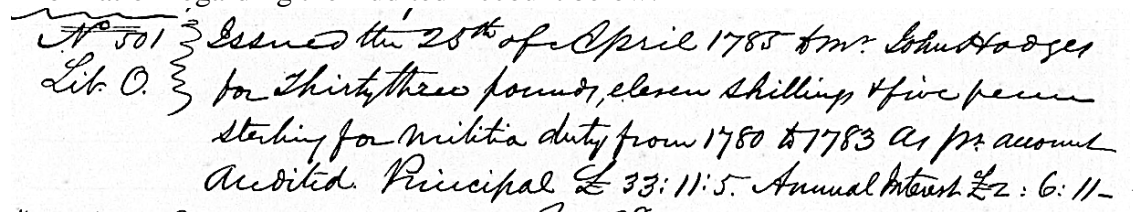 No 501 } Issued the 25th of April 1785 to Mr. John Hodges
Lib. O. } for Thirty three pounds, eleven shillings & five pence
sterling for militia duty from 1780 to 1783 as pr. account
Audited. Principal £ 33:11:5. Annual Interest £2:6:11-